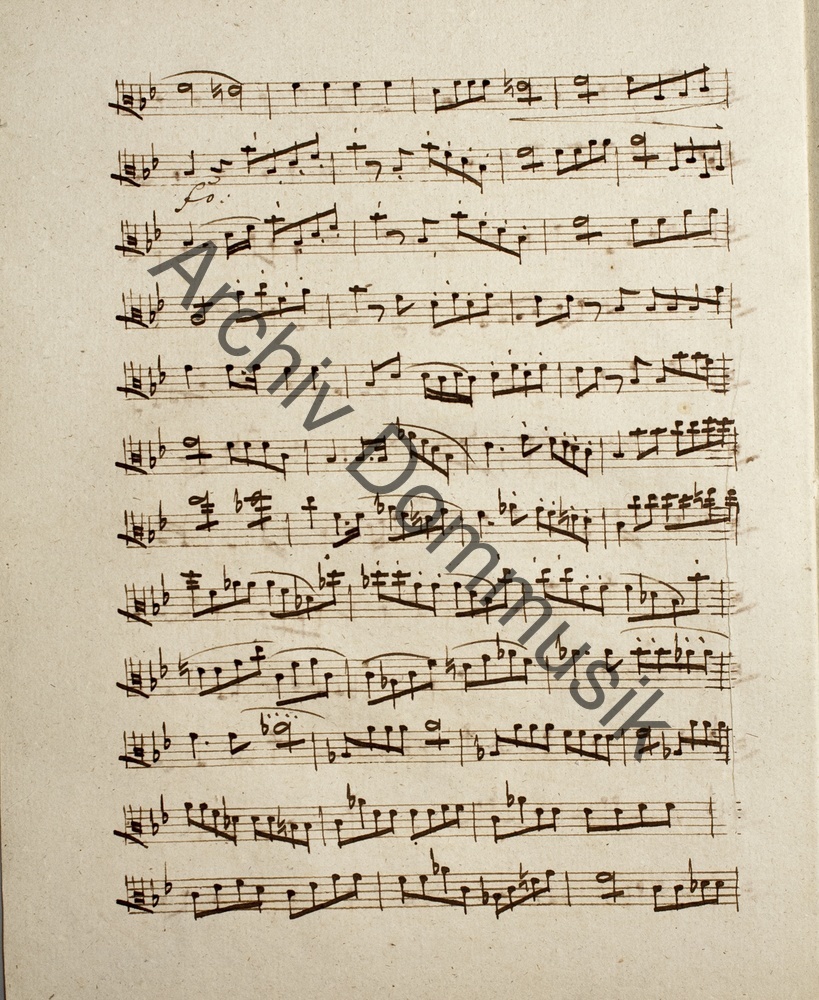 fo:
Archiv Dommusik